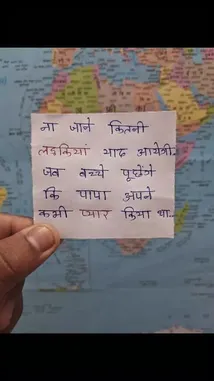 ना जाने कितनी
लड़कियां याद आयेगी..
जब बच्चे पूछेंगे
कि पापा अपने
कभी प्यार किया था...